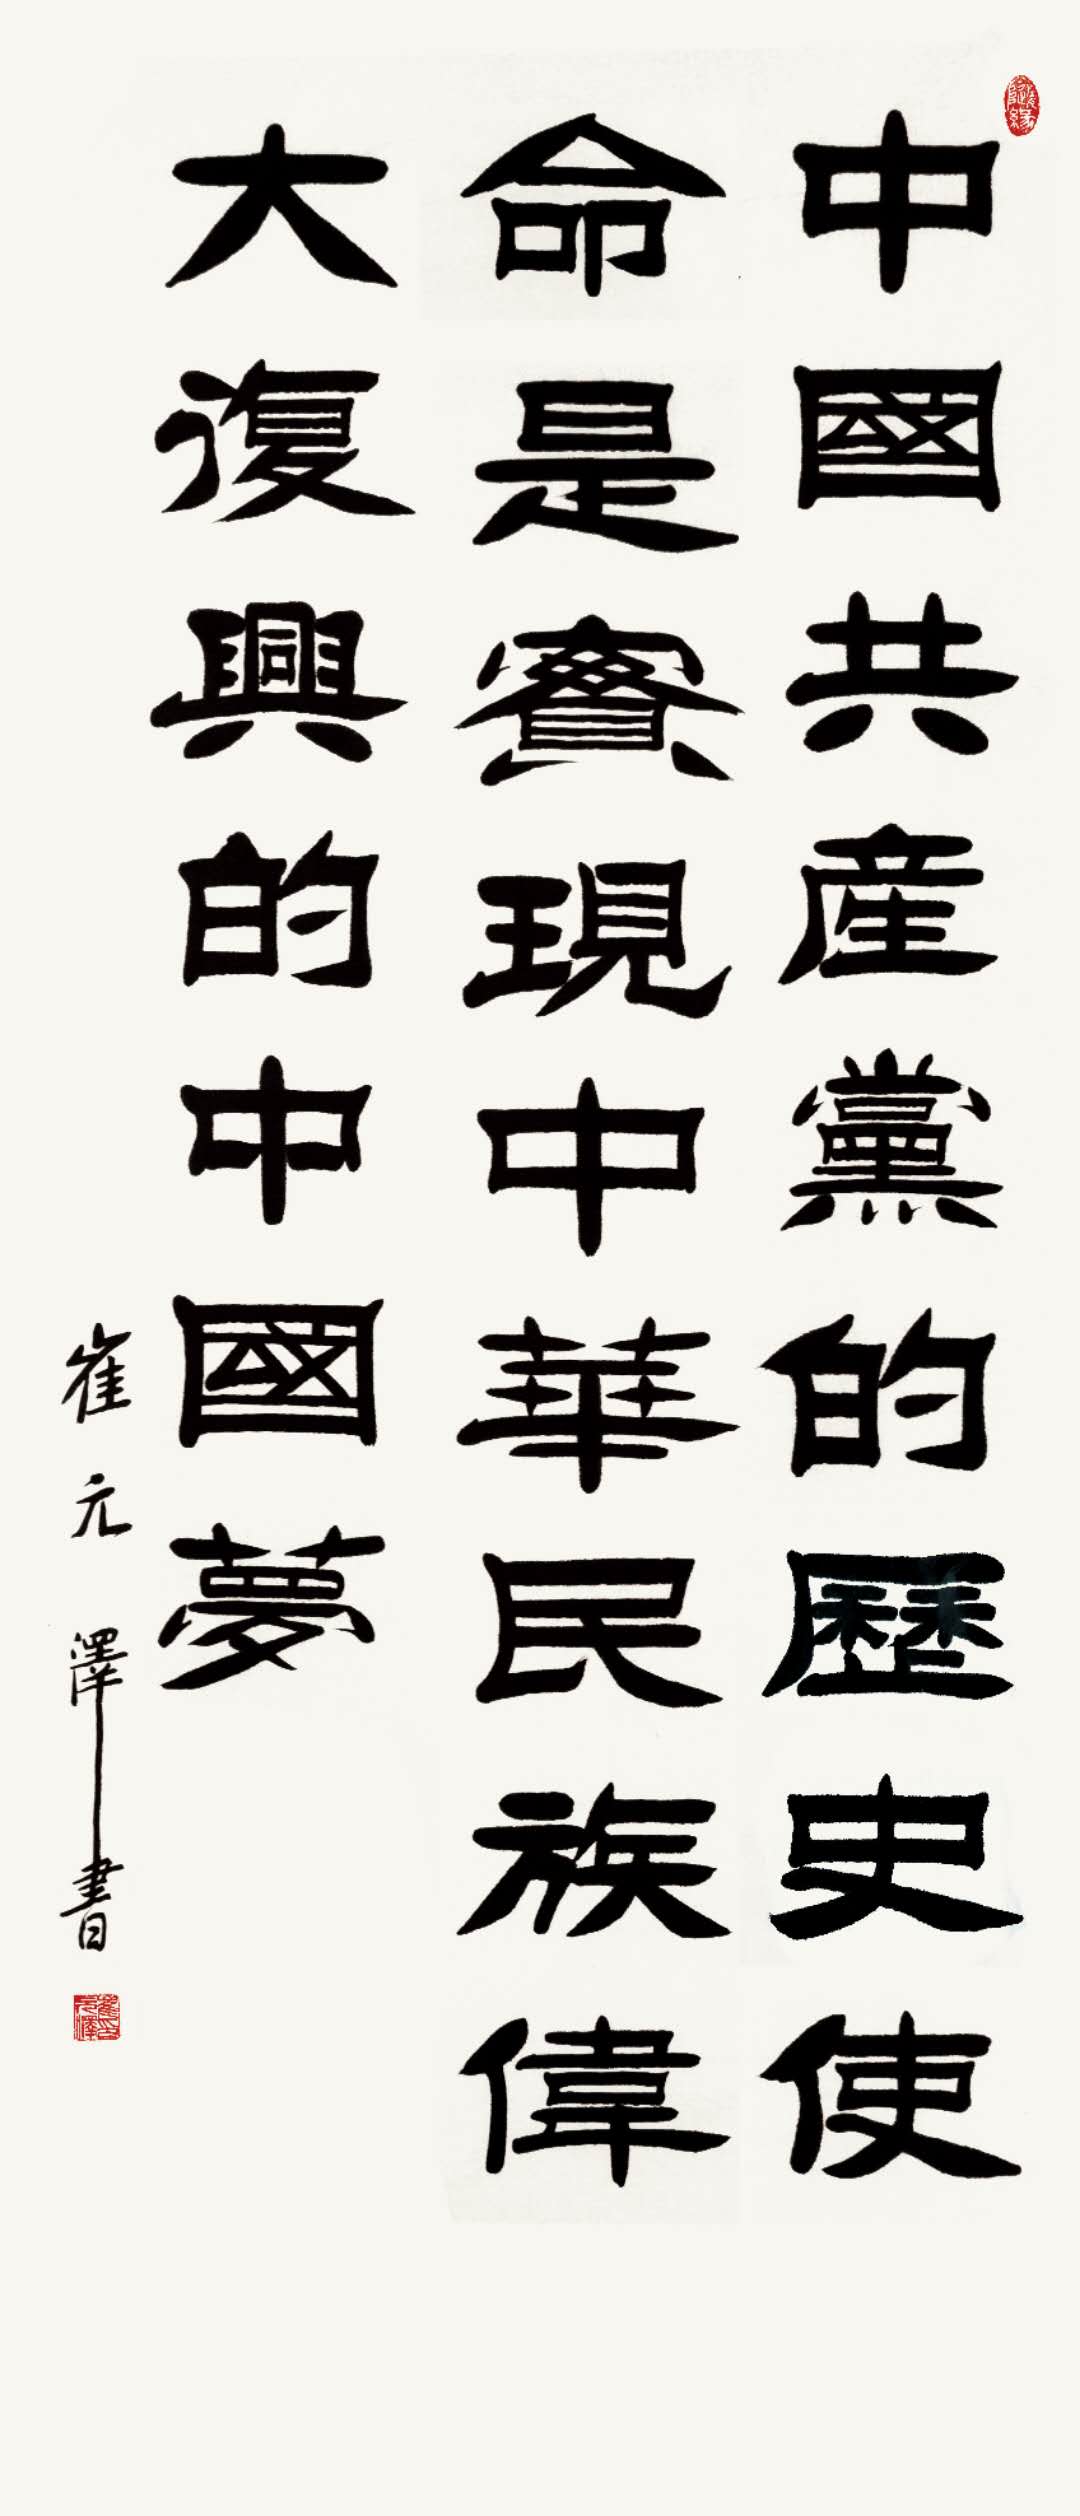 中國共産黨的歷史使
命是實現中華民族偉
大復興的中國夢
崔元澤書
隨緣
崔元澤